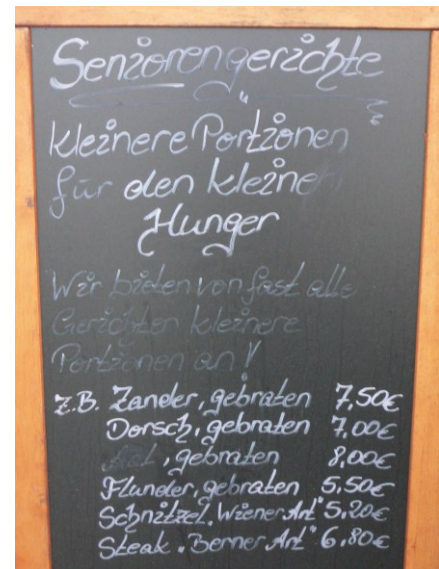 Seniorengerichte
"
kleinere Portionen
für den kleinen
Hunger
Wir bieten von fast alle
Gerichten kleinere
Portionen an!
z.B. Zander, gebraten 7,50€
Dorsch, gebraten 7,00€
Aal, gebraten 8,00€
Flunder, gebraten 5,50€
Schnitzel "Wiener Art" 5,20€
Steak "Berner Art" 6,80€